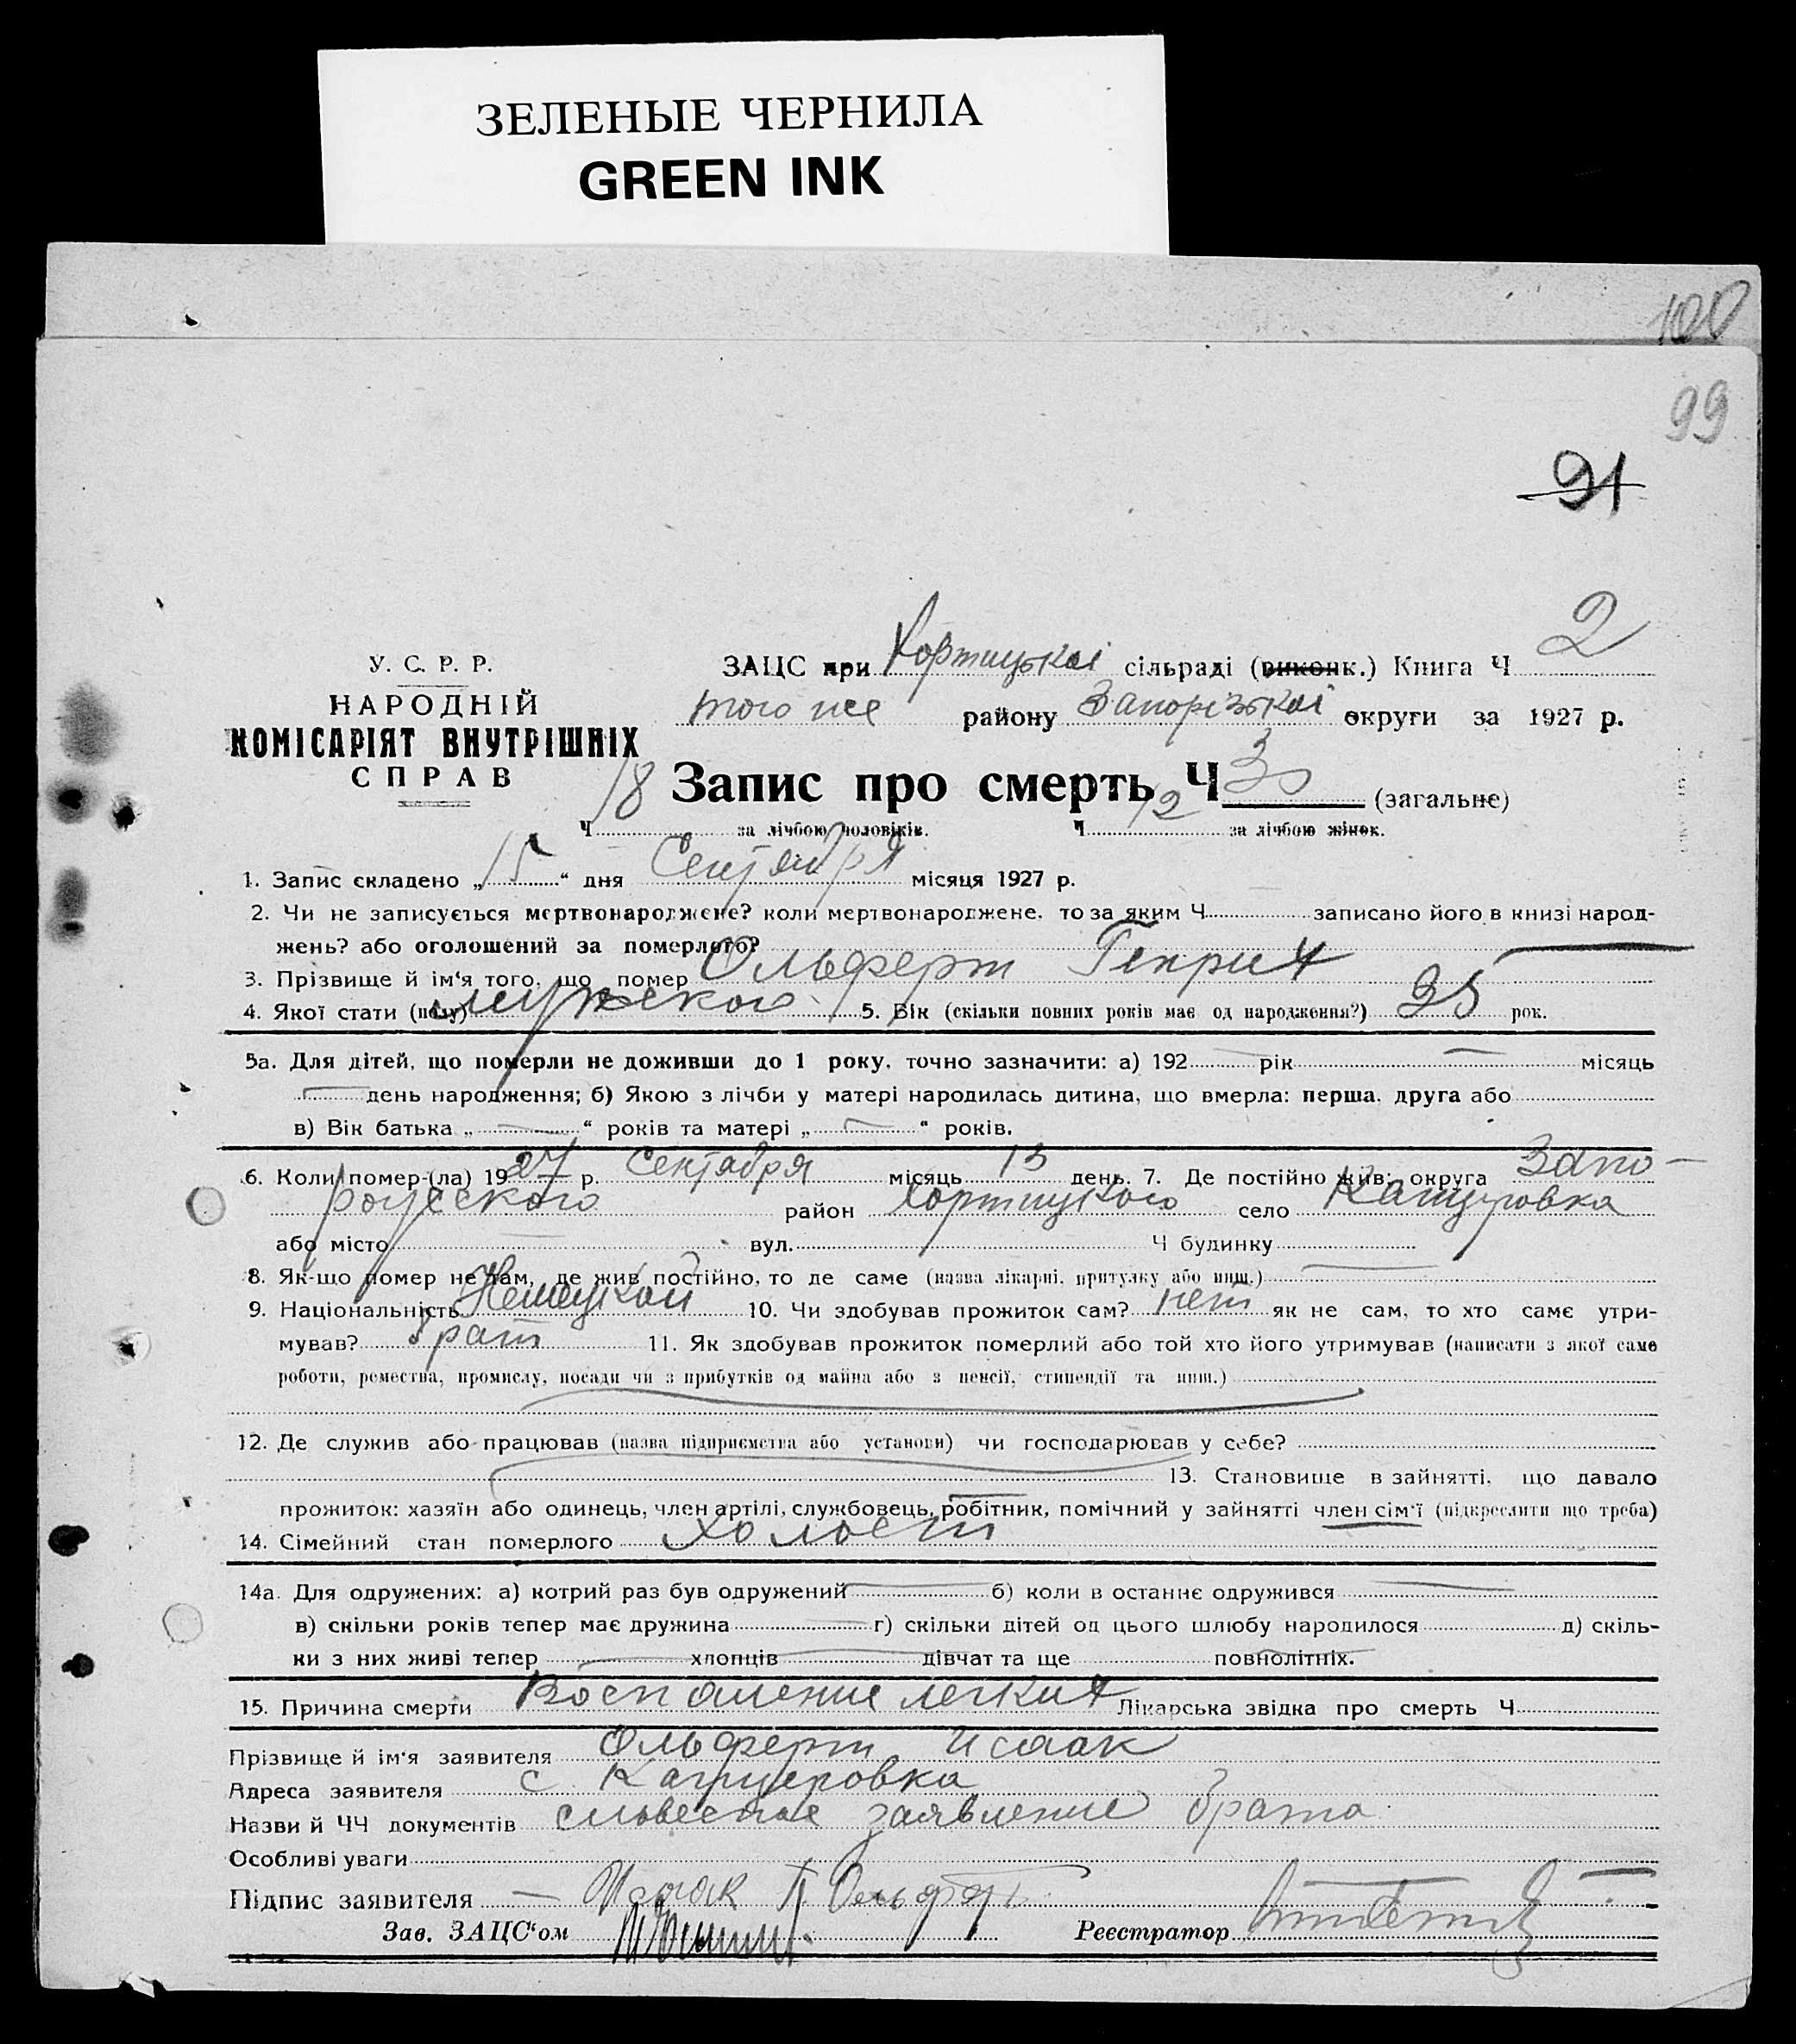 ЗЕЛЕНЫЕ ЧЕРНИЛА
GREEN INK
100
99
91
У. С. Р. Р.
НАРОДНІЙ
КОМІСАРІЯТ ВНУТРІШНІХ
СПРАВ
ЗАЦС при Хортицькой сільраді (виконк.) Книга Ч 2
того же району Запорізької округи за 1927 р.
Запис про смерть Ч 30 (загальне)
Ч 18 за лічбою чоловіків. Ч 12 за лічбою жінок.
1. Запис складено „15“ дня Сентября місяця 1927 р.
2. Чи не записується мертвонароджене? коли мертвонароджене, то за яким Ч записано його в книзі народ-
жень? або оголошений за померлого?
3. Прізвище й ім‘я того, що помер Ольферт Генрих
4. Якої стати (полу) мужского 5. Вік (скільки повних років має од народження?) 35 рок.
5а. Для дітей, що померли не доживши до 1 року, точно зазначити: а) 192 рік місяць
день народження; б) Якою з лічби у матері народилась дитина, що вмерла: перша, друга або
в) Вік батька „ “ років та матері „ “ років.
6. Коли помер-(ла) 1927 р. Сентября місяць 13 день. 7. Де постійно жив: округа Запо-
рожского район Хортицкого село Канцеровка
або місто вул. Ч будинку
8. Як-що помер не там, де жив постійно, то де саме (назва лікарні, притулку або инш.)
9. Національність Немецкой 10. Чи здобував прожиток сам? нет як не сам, то хто саме утри-
мував? брат 11. Як здобував прожиток померлий або той хто його утримував (написати з якої саме
роботи, ремества, промислу, посади чи з прибутків од майна або з пенсії, стипендії та инш.)
12. Де служив або працював (назва підприємства або установи) чи господарював у себе?
13. Становище в зайнятті, що давало
прожиток: хазяїн або одинець, член артілі, службовець, робітник, помічний у зайнятті член сім‘ї (підкреслити що треба)
14. Сімейний стан померлого холост
14а. Для одружених: а) котрий раз був одружений б) коли в останнє одружився
в) скільки років тепер має дружина г) скільки дітей од цього шлюбу народилося д) скіль-
ки з них живі тепер хлопців дівчат та ще повнолітніх.
15. Причина смерти Воспаление легких Лікарська звідка про смерть Ч
Прізвище й ім‘я заявителя Ольферт Исаак
Адреса заявителя с Канцеровка
Назви й ЧЧ документів словесное заявление брата
Особливі уваги
Підпис заявителя Исаак П Ольферт
Зав. ЗАЦС‘ом
Реєстратор